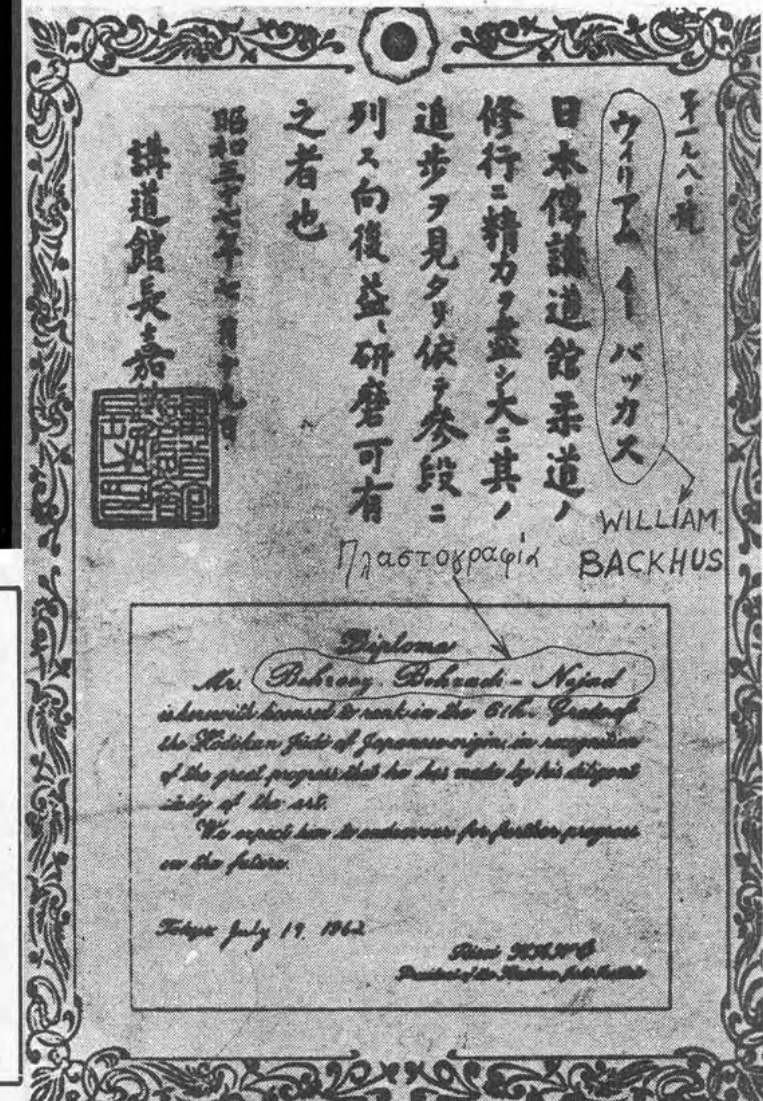 ウイリアム イー バックス
日本傳講道館柔道ノ
修行ニ精力ヲ盡シ大ニ其ノ
進歩ヲ見タリ依テ參段ニ
列ス向後益、研磨可有
之者也
昭和三十七年七月十九日
講道館長嘉
WILLIAM
BACKHUS
Πλαστογραφία
Diploma
Mr. Behrooy Behzadi - Nejad
is herewith licensed to rank in the 6th. Grade of
the Kōdōkan Jūdō of Japanese origin, in recognition
of the great progress that he has made by his diligent
study of the art.
We expect him to endeavour for further progress
in the future.
Tokyo July 19. 1962
Risei KANO
President of the Kodokan Judo Institute